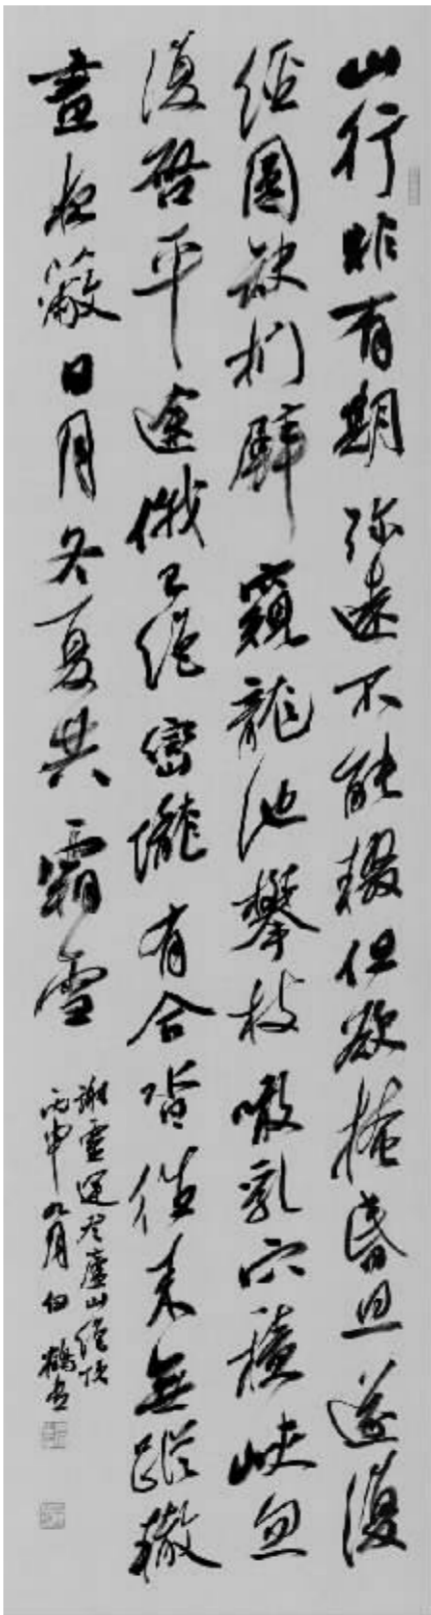 山行非有期弥遠不能輟但欲掩昏旦遂復
經圓缺捫壁窺龍池攀枝瞰乳穴積峽忽
復啓平途俄已絕巒壠有合沓往來無蹤轍
晝夜蔽日月冬夏共霜雪
謝靈運登廬山絕頂
丙申九月鶴書